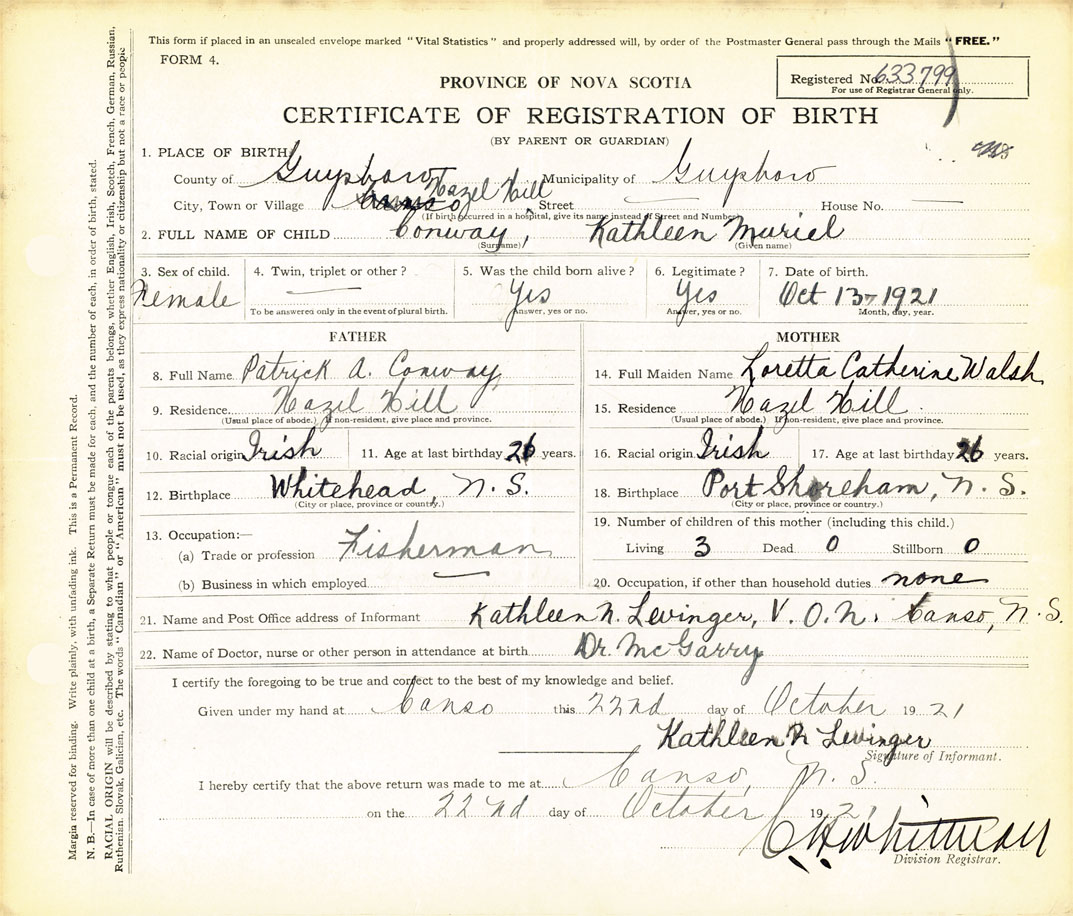 This form if placed in an unsealed envelope marked "Vital Statistics" and properly addressed will, by order of the Postmaster General pass through the Mails "FREE."
FORM 4.
PROVINCE OF NOVA SCOTIA
Registered No. 633799
For use of Registrar General only.
CERTIFICATE OF REGISTRATION OF BIRTH
(BY PARENT OR GUARDIAN)
1. PLACE OF BIRTH:
County of Guysboro Municipality of Guysboro
City, Town or Village Hazel Hill Street House No.
(If birth occurred in a hospital, give its name instead of Street and Number)
2. FULL NAME OF CHILD Conway, Kathleen Muriel
(Surname) (Given name)
3. Sex of child. 4. Twin, triplet or other? 5. Was the child born alive? 6. Legitimate? 7. Date of birth.
Female Yes Yes Oct 13-1921
To be answered only in the event of plural birth. Answer, yes or no. Answer, yes or no. Month, day, year.
FATHER
8. Full Name Patrick A. Conway
9. Residence Hazel Hill
(Usual place of abode.) If non-resident, give place and province.
10. Racial origin Irish 11. Age at last birthday 26 years.
12. Birthplace Whitehead, N. S.
(City or place, province or country.)
13. Occupation:—
(a) Trade or profession Fisherman
(b) Business in which employed
MOTHER
14. Full Maiden Name Loretta Catherine Walsh
15. Residence Hazel Hill.
(Usual place of abode.) If non-resident, give place and province.
16. Racial origin Irish 17. Age at last birthday 26 years.
18. Birthplace Port Shoreham, N. S.
(City or place, province or country.)
19. Number of children of this mother (including this child.)
Living 3 Dead 0 Stillborn 0
20. Occupation, if other than household duties none
21. Name and Post Office address of Informant Kathleen N. Levinger, V. O. N. Canso, N. S.
22. Name of Doctor, nurse or other person in attendance at birth Dr. McGarry
I certify the foregoing to be true and correct to the best of my knowledge and belief.
Given under my hand at Canso this 22nd day of October 1921
Kathleen N Levinger
Signature of Informant.
I hereby certify that the above return was made to me at Canso, N. S.
on the 22nd day of October 1921
C H Whitman
Division Registrar.
Margin reserved for binding. Write plainly, with unfading ink. This is a Permanent Record.
N. B.—In case of more than one child at a birth, a Separate Return must be made for each, and the number of each, in order of birth, stated.
RACIAL ORIGIN will be described by stating to what people or tongue each of the parents belongs, whether English, Irish, Scotch, French, German, Russian,
Ruthenian, Slovak, Galician, etc. The words "Canadian" or "American" must not be used, as they express nationality or citizenship but not a race or people